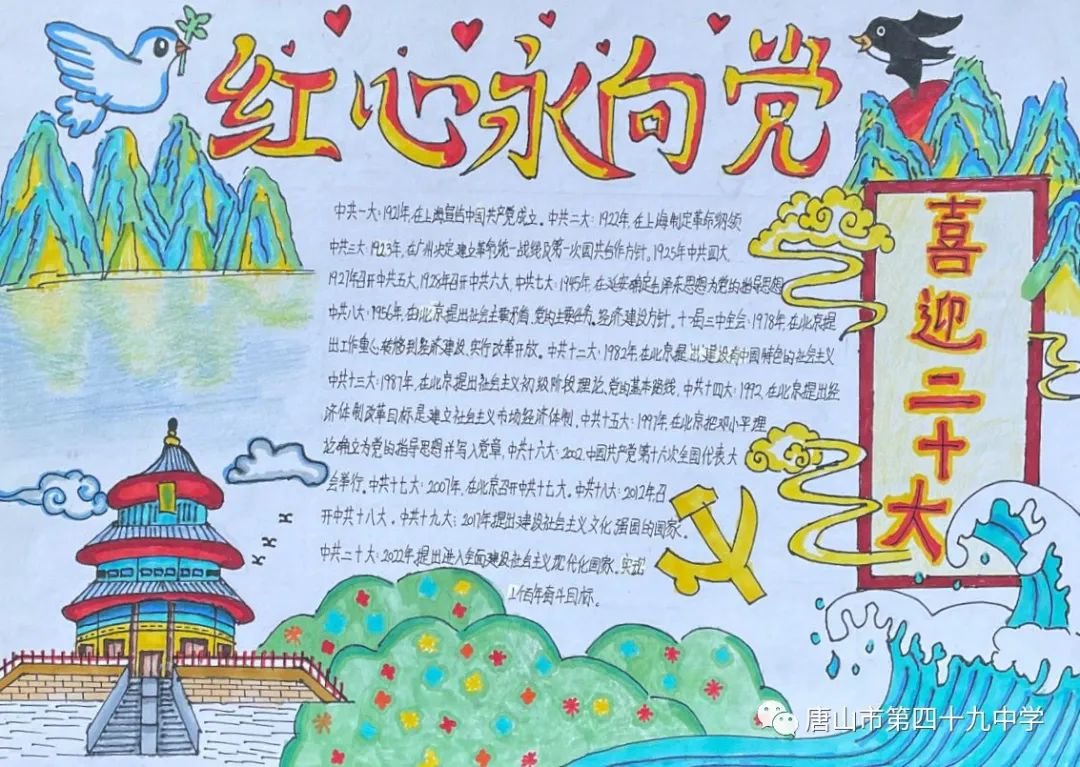 红心永向党
喜迎二十大
中共一大:1921年,在上海宣告中国共产党成立。中共二大:1922年,在上海制定革命纲领
中共三大:1923年,在广州决定建立革命统一战线及第一次国共合作方针。1925年中共四大,
1927年召开中共五大,1928年召开中共六大,中共七大:1945年,在延安确定毛泽东思想为党的指导思想
中共八大:1956年,在北京提出社会主要矛盾,党的主要任务。经济建设方针。十一届三中全会:1978年,在北京提
出工作重心转移到经济建设,实行改革开放。中共十二大:1982年,在北京提出建设有中国特色的社会主义
中共十三大:1987年,在北京提出社会主义初级阶段理论,党的基本路线,中共十四大:1992,在北京提出经
济体制改革目标是建立社会主义市场经济体制,中共十五大:1997年,在北京把邓小平理
论确立为党的指导思想并写入党章,中共十六大:2002,中国共产党第十六次全国代表大
会举行。中共十七大:2007年,在北京召开中共十七大。中共十八大:2012年召
开中共十八大。中共十九大:2017年提出建设社会主义文化强国的国家。
中共二十大:2022年,提出进入全面建设社会主义现代化国家,实现
1个百年奋斗目标。
唐山市第四十九中学